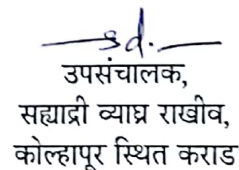 sd.
उपसंचालक,
सह्याद्री व्याघ्र राखीव,
कोल्हापूर स्थित कराड